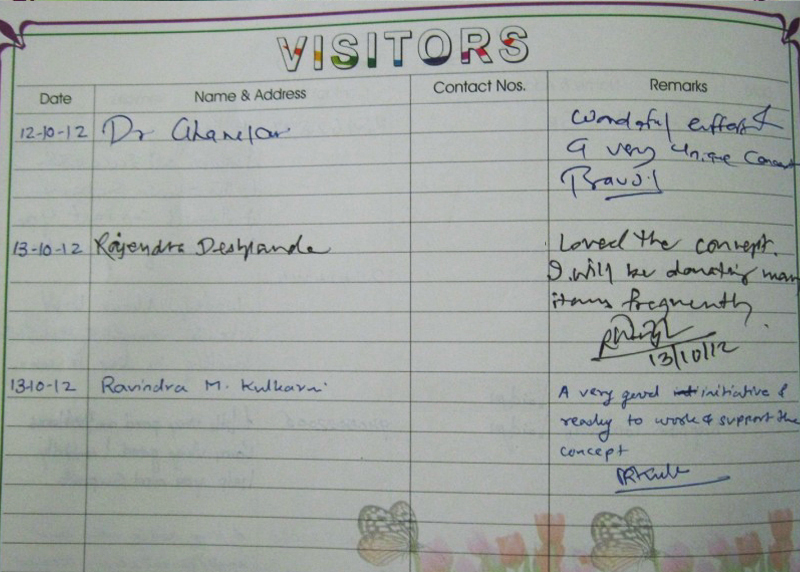 VISITORS
Date Name & Address Contact Nos. Remarks
12-10-12 Dr Wonderful effort &
a very unique Concept
Bravo!
13-10-12 Rajendra Deshpande Loved the concept.
I will be donating many
items frequently.
13/10/12
13-10-12 Ravindra M. Kulkarni A very good initiative &
ready to work & support the
concept